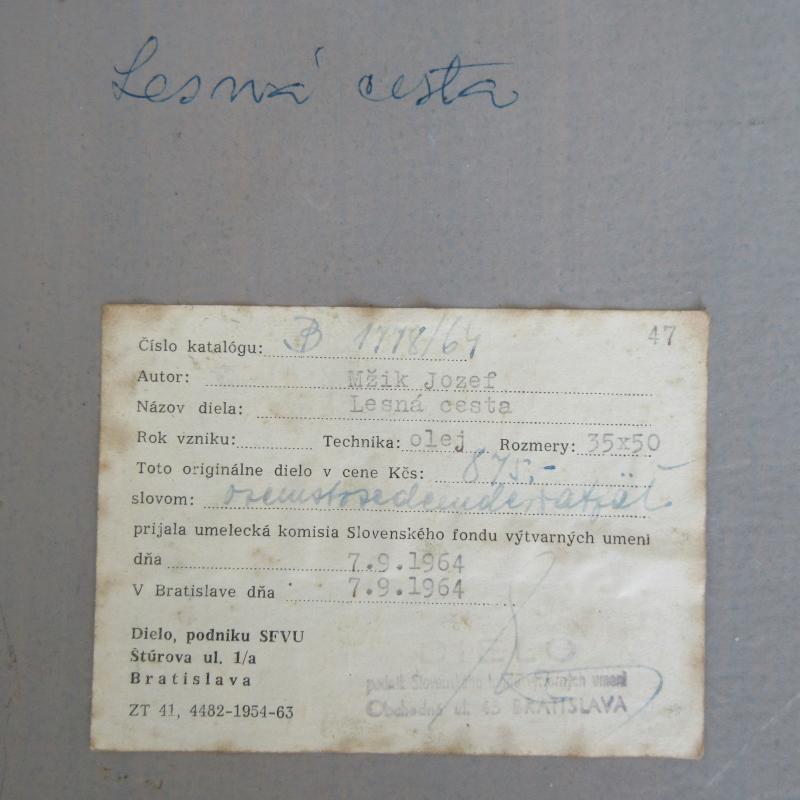 Lesná cesta
47
Číslo katalógu: B 1778/64
Autor: Mžik Jozef
Názov diela: Lesná cesta
Rok vzniku: Technika: olej Rozmery: 35x50
Toto originálne dielo v cene Kčs: 875.-
slovom: osemstosedemdesiatpäť
prijala umelecká komisia Slovenského fondu výtvarných umení
dňa 7.9.1964
V Bratislave dňa 7.9.1964
Dielo, podniku SFVU
Štúrova ul. 1/a
Bratislava
ZT 41, 4482-1954-63
DIELO
podnik Slovenského fondu výtvarných umení
Obchodná ul. 45 BRATISLAVA